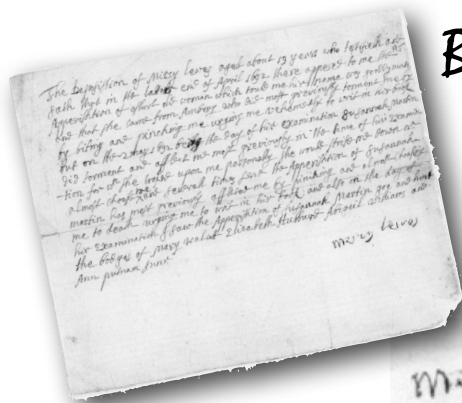 The Deposition of Mircy Lewes aged about 19 years who testifieth and
saith that in the latter end of April 1692 there appeared to me the
Apperishtion of a short old woman which tould me hir name was goody martin
and that she came from Amsbery who did most greviously torment me by
biting and pinching me urging me vehemently to writ in hir book
but on the 2 may 1692 being the day of hir examination Susannah Martin
did torment and afflect me most greviously in the time of hir examina
tion for when she looked upon me personally she would strick me down or
almost choak and severall times sence the Apperishtion of Susannah
martin has most greviously afflected me by pinching and almost choaking
me to death urging me to writ in hir book and also in the day of
hir examination I saw the Apperishtion of Susannah Martin goe and hurt
the bodyes of Mary walcot Elizabeth Hubbard Abigail williams and
Ann putnam junr
mircy lewes
B